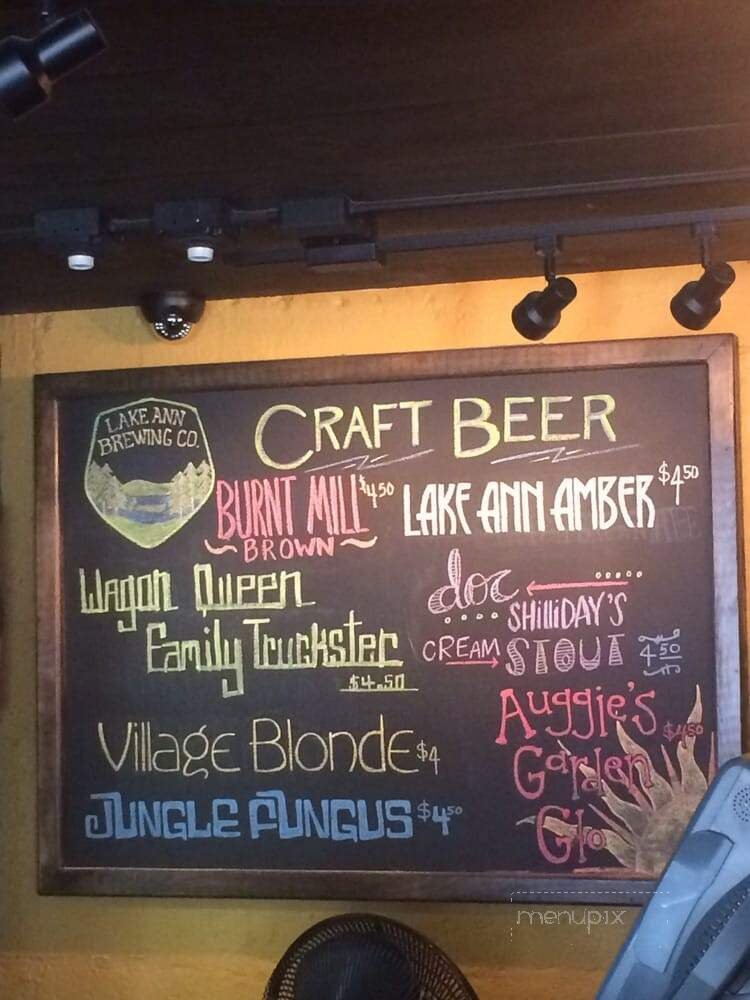 LAKE ANN
BREWING CO.
CRAFT BEER
BURNT MILL $4.50
~BROWN~
LAKE ANN AMBER $4.50
Wagon Queen
Family Truckster
$4.50
doc
SHilliDAY'S
CREAM STOUT 4.50
Village Blonde $4
JUNGLE FUNGUS $4.50
Auggie's $4.50
Garden
Glo
menupix